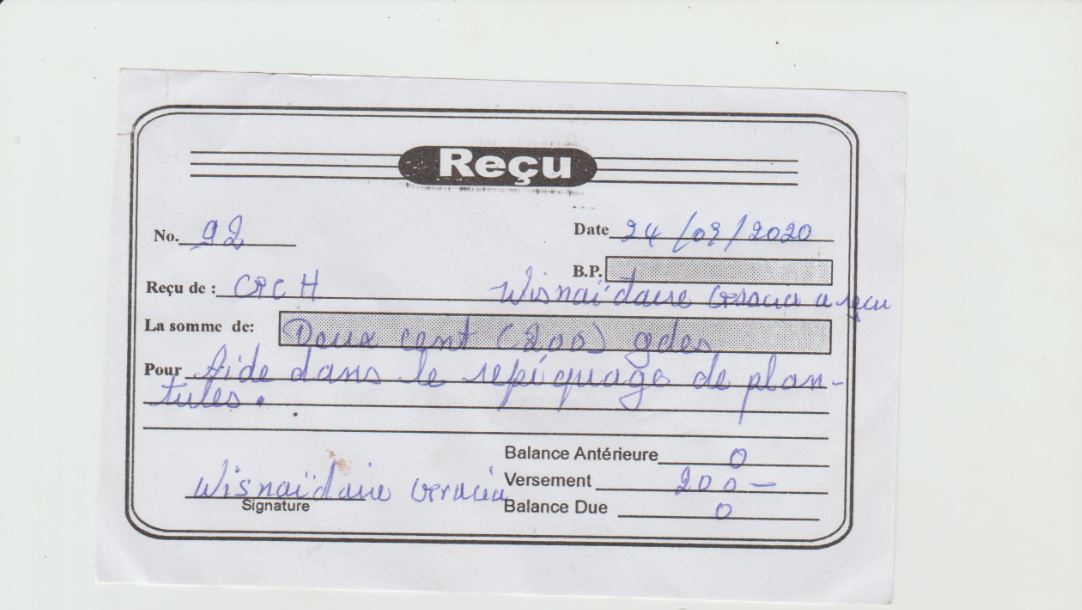 Reçu
No. 92 Date 24/09/2020
B.P.
Reçu de : Wisnaïdaire a reçu
La somme de: Deux cent (200) gdes
Pour Aide dans le repiquage de plan-
tules.
Balance Antérieure 0
Versement 200 -
Wisnaïdaire
Signature
Balance Due 0